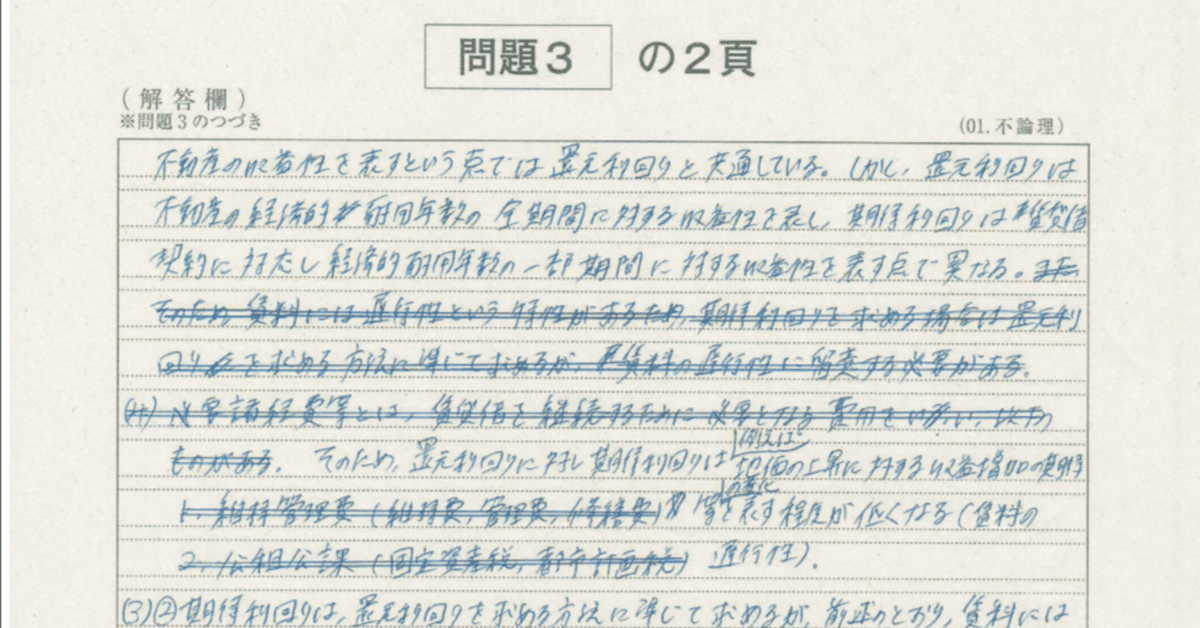 問題3 の2頁
(解答欄)
※問題3のつづき
(01.不論理)
不動産の収益性を表すという点では還元利回りと共通している。しかし、還元利回りは
不動産の経済的耐用年数の全期間に対する収益性を表し、期待利回りは賃貸借
契約に対応し経済的耐用年数の一部期間に対する収益性を表す点で異なる。また
そのため、賃料には遅行性という特性があるため、期待利回りを求める場合は還元利
回りを求める方法に準じて求めるが、賃料の遅行性に留意する必要がある。
(4) 必要諸経費等とは、賃貸借を継続するために必要となる費用をいい、以下の
例えば
ものがある。 そのため、還元利回りに対し期待利回りは地価の上昇に対する収益増加の期待
の変化
1. 維持管理費(維持費、管理費、修繕費) 等を表す程度が低くなる(賃料の
2. 公租公課(固定資産税、都市計画税) 遅行性)。
(3)②期待利回りは、還元利回りを求める方法に準じて求めるが、前述のとおり、賃料には